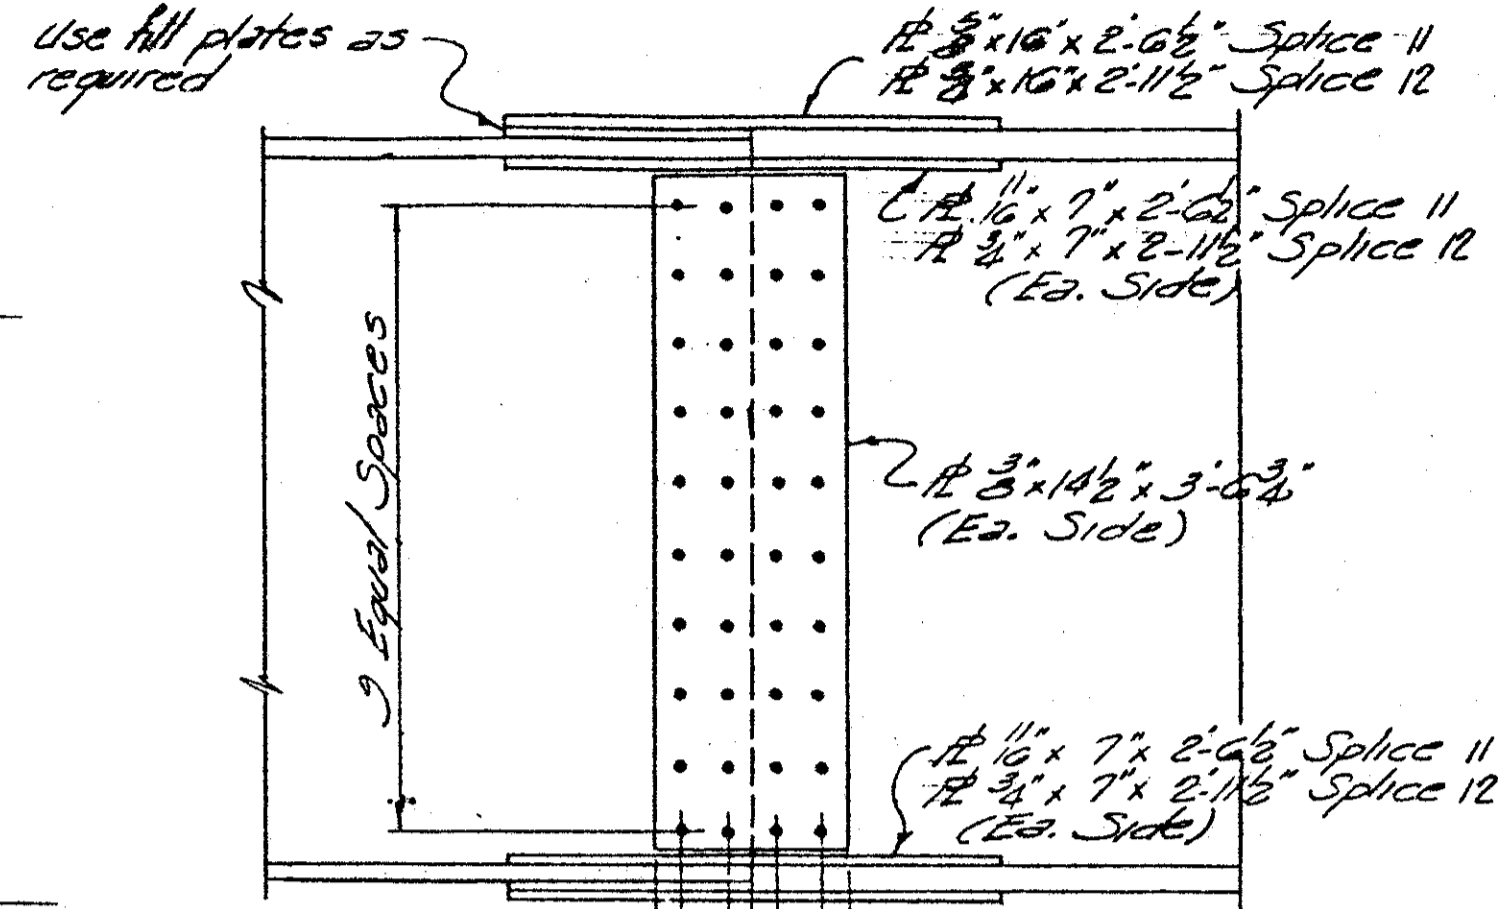 Use fill plates as
required
PL 5/8" x 16" x 2'-6 1/2" Splice 11
PL 3/4" x 16" x 2'-11 1/2" Splice 12
PL 11/16" x 7" x 2'-6 1/2" Splice 11
PL 3/4" x 7" x 2'-11 1/2" Splice 12
(Ea. Side)
9 Equal Spaces
PL 3/8" x 14 1/2" x 3'-6 3/4"
(Ea. Side)
PL 11/16" x 7" x 2'-6 1/2" Splice 11
PL 3/4" x 7" x 2'-11 1/2" Splice 12
(Ea. Side)